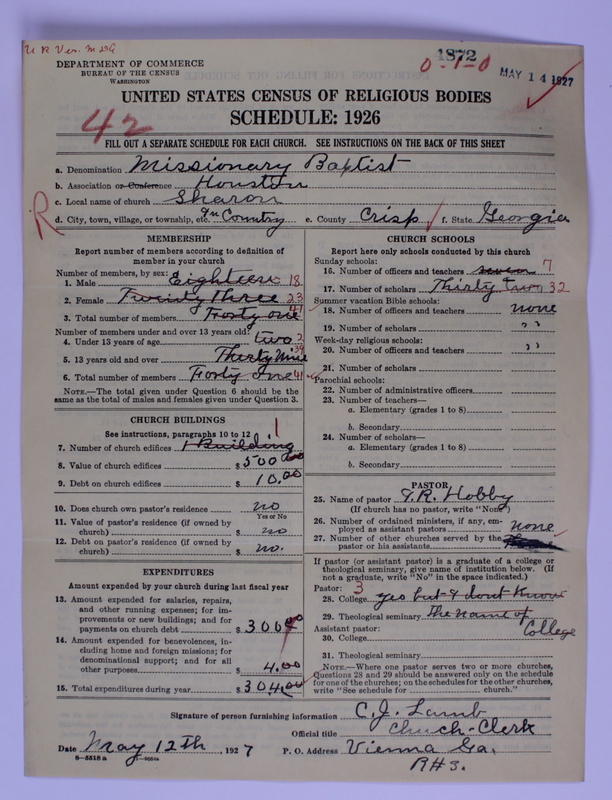 U R Ver. M
DEPARTMENT OF COMMERCE
BUREAU OF THE CENSUS
WASHINGTON
1872
0-1-0
MAY 14 1927
UNITED STATES CENSUS OF RELIGIOUS BODIES
SCHEDULE: 1926
42
FILL OUT A SEPARATE SCHEDULE FOR EACH CHURCH. SEE INSTRUCTIONS ON THE BACK OF THIS SHEET
a. Denomination Missionary Baptist
b. Association or Conference Houston
c. Local name of church Sharon
R
d. City, town, village, or township, etc. In Country e. County Crisp f. State Georgia
MEMBERSHIP
Report number of members according to definition of
member in your church
Number of members, by sex:
1. Male Eighteen 18
2. Female Twenty three 23
3. Total number of members Forty one 41
Number of members under and over 13 years old:
4. Under 13 years of age two 2
5. 13 years old and over Thirty Nine 39
6. Total number of members Forty One 41
NOTE.—The total given under Question 6 should be the
same as the total of males and females given under Question 3.
CHURCH BUILDINGS
See instructions, paragraphs 10 to 12
7. Number of church edifices 1 Building 1
8. Value of church edifices $ 500 00
9. Debt on church edifices $ 10.00
10. Does church own pastor's residence no
Yes or No
11. Value of pastor's residence (if owned by
church) $ no
12. Debt on pastor's residence (if owned by
church) $ no.
EXPENDITURES
Amount expended by your church during last fiscal year
13. Amount expended for salaries, repairs,
and other running expenses; for im-
provements or new buildings; and for
payments on church debt $ 300
14. Amount expended for benevolences, in-
cluding home and foreign missions; for
denominational support; and for all
other purposes $ 4.00
15. Total expenditures during year $ 304.00
CHURCH SCHOOLS
Report here only schools conducted by this church
Sunday schools:
16. Number of officers and teachers seven 7
17. Number of scholars Thirty two 32
Summer vacation Bible schools:
18. Number of officers and teachers none
19. Number of scholars " "
Week-day religious schools:
20. Number of officers and teachers " "
21. Number of scholars
Parochial schools:
22. Number of administrative officers
23. Number of teachers—
a. Elementary (grades 1 to 8)
b. Secondary
24. Number of scholars—
a. Elementary (grades 1 to 8)
b. Secondary
PASTOR
25. Name of pastor T.R. Hobby
(If church has no pastor, write "None")
26. Number of ordained ministers, if any, em-
ployed as assistant pastors none
27. Number of other churches served by the
pastor or his assistants
3
If pastor (or assistant pastor) is a graduate of a college or
theological seminary, give name of institution below. (If
not a graduate, write "No" in the space indicated.)
Pastor:
28. College yes but I dont Know
29. Theological seminary The name of
College
Assistant pastor:
30. College
31. Theological seminary
NOTE.—Where one pastor serves two or more churches,
Questions 28 and 29 should be answered only on the schedule
for one of the churches; on the schedules for the other churches,
write "See schedule for church."
Signature of person furnishing information C.J. Lamb
Official title Chuch-Clerk
Date May 12th, 1927 P. O. Address Vienna Ga.
R#3.
8—5518 a